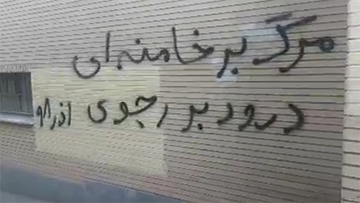 مرگ بر خامنه ای
درود بر رجوی اذر ۹۸